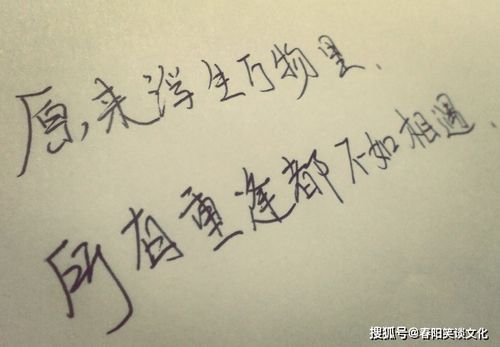 原来浮生万物里.
所有重逢都不如相遇.
搜狐号@春阳笑谈文化